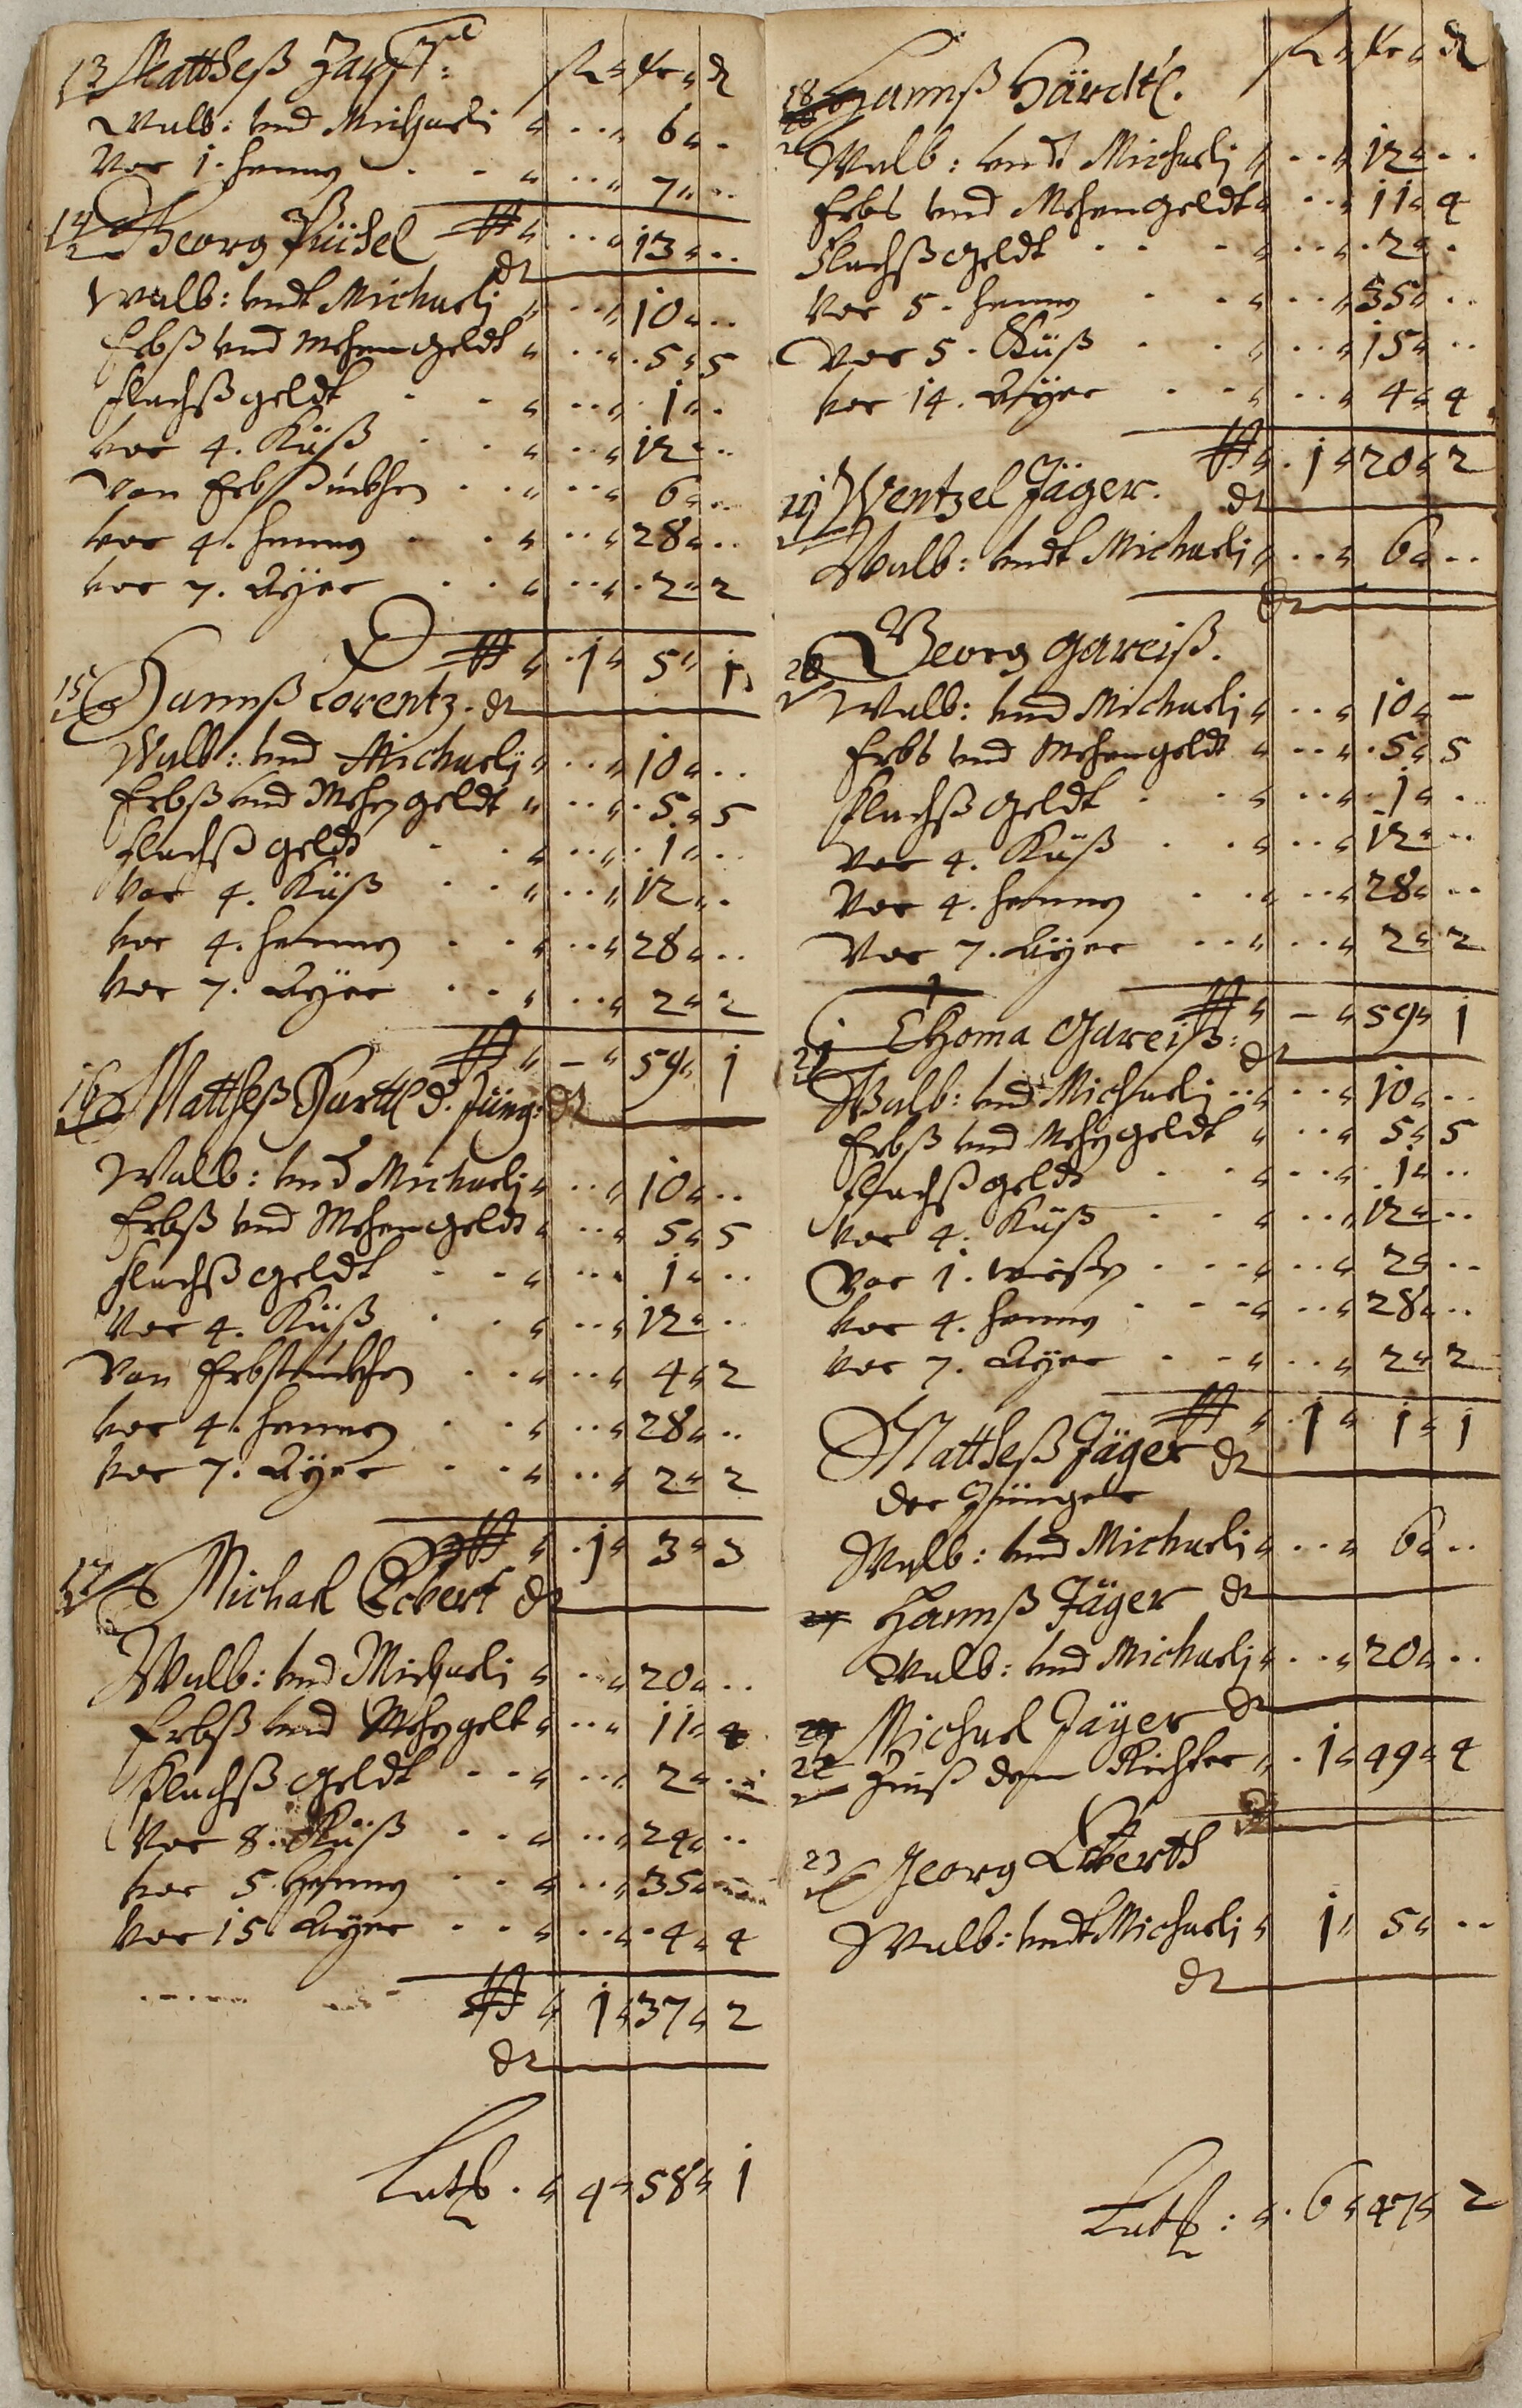 13 Mattheß Zapf: fl " kr " d
Walb: und Michaeli " .. " 6 " .
Vor 1. henny . . " .. " 7 " ..
" .. " 13 " ..
14 Georg Püchel
Walb: undt Michaelj " .. " 10 " ..
Erbß und Mehengeldt " .. " 5 " 5
flachßgeldt . . " .. " 1 " .
vor 4. Käß . . " .. " 12 " ..
Von Erbstückhen . . " .. " 6 " ..
vor 4. henny . . " .. " 28 " ..
vor 7. Ayer . . " .. " 2 " 2
" . 1 " 5 " 1
15 Hannß Lorentz.
Walb: und Michaelj " .. " 10 " ..
Erbß und Mehengeldt " .. " 5 " 5
flachßgeldt . . " .. " 1 " ..
Vor 4. Käß . . " .. " 12 " .
vor 4. henny . . " .. " 28 " ..
vor 7. Ayer . . " .. " 2 " 2
" – " 59 " 1
16 Mattheß Hartl d. Jüng:
Walb: und Michaelj " .. " 10 " ..
Erbß und Mehengeldt " .. " 5 " 5
flachßgeldt . . " .. " 1 " ..
Vor 4. Käß . . " .. " 12 " ..
Von Erbstückhen . . " .. " 4 " 2
vor 4. henny . . " .. " 28 " ..
vor 7. Ayer . . " .. " 2 " 2
" . 1 " 3 " 3
17 Michael Eckert
Walb: und Michaeli " .. " 20 " ..
Erbß und Mehengelt " .. " 11 " 4
flachßgeldt . . " .. " 2 " ..
Vor 8. Käß . . " .. " 24 " ..
vor 5. henny . . " .. " 35 "
vor 15 Ayer . . " .. " 4 " 4
" 1 " 37 " 2
Latß. " 4 " 58 " 1
fl " kr " d
18 Hannß Härdtl.
Walb: undt Michaelj " .. " 12 " ..
Erbs und Mehengeldt " .. " 11 " 4
flachßgeldt . . . " .. " 2 " .
vor 5. henny . . " .. " 35 " ..
Vor 5. Käß . . " .. " 15 " ..
vor 14. Ayer . . " .. " 4 " 4
" . 1 " 20 " 2
19 Wentzel Jäger.
Walb: undt Michaelj " .. " 6 " ..
20 Georg Gareiß.
Walb: und Michaelj " .. " 10 " –
Erbs und Mehengeldt " .. " 5 " 5
flachßgeldt . . " .. " 1 " .
vor 4. Käß . . " .. " 12 " ..
Vor 4. henny . . " .. " 28 " ..
Vor 7. Ayer . . " .. " 2 " 2
" – " 59 " 1
21 Thoma Gareiß:
Walb: und Michaelj .. " .. " 10 " ..
Erbß und Mehengeldt " .. " 5 " 5
flachßgeldt . . " .. " 1 " ..
vor 4. Käß . . " .. " 12 " ..
Vor 1. wisen . . " .. " 2 " ..
vor 4. henny . . " .. " 28 " ..
vor 7. Ayer . . " .. " 2 " 2
" . 1 " 1 " 1
Mattheß Jäger
der Jüngere
Walb: und Michaeli " .. " 6 " ..
Hannß Jäger
Walb: und Michaelj " .. " 20 " ..
Michael Jäger
22 Zinß dem Richter " . 1 " 49 " 4
23 Georg Eckerth
Walb: undt Michaelj " 1 " 5 " ..
Latß: " . 6 " 47 " 2